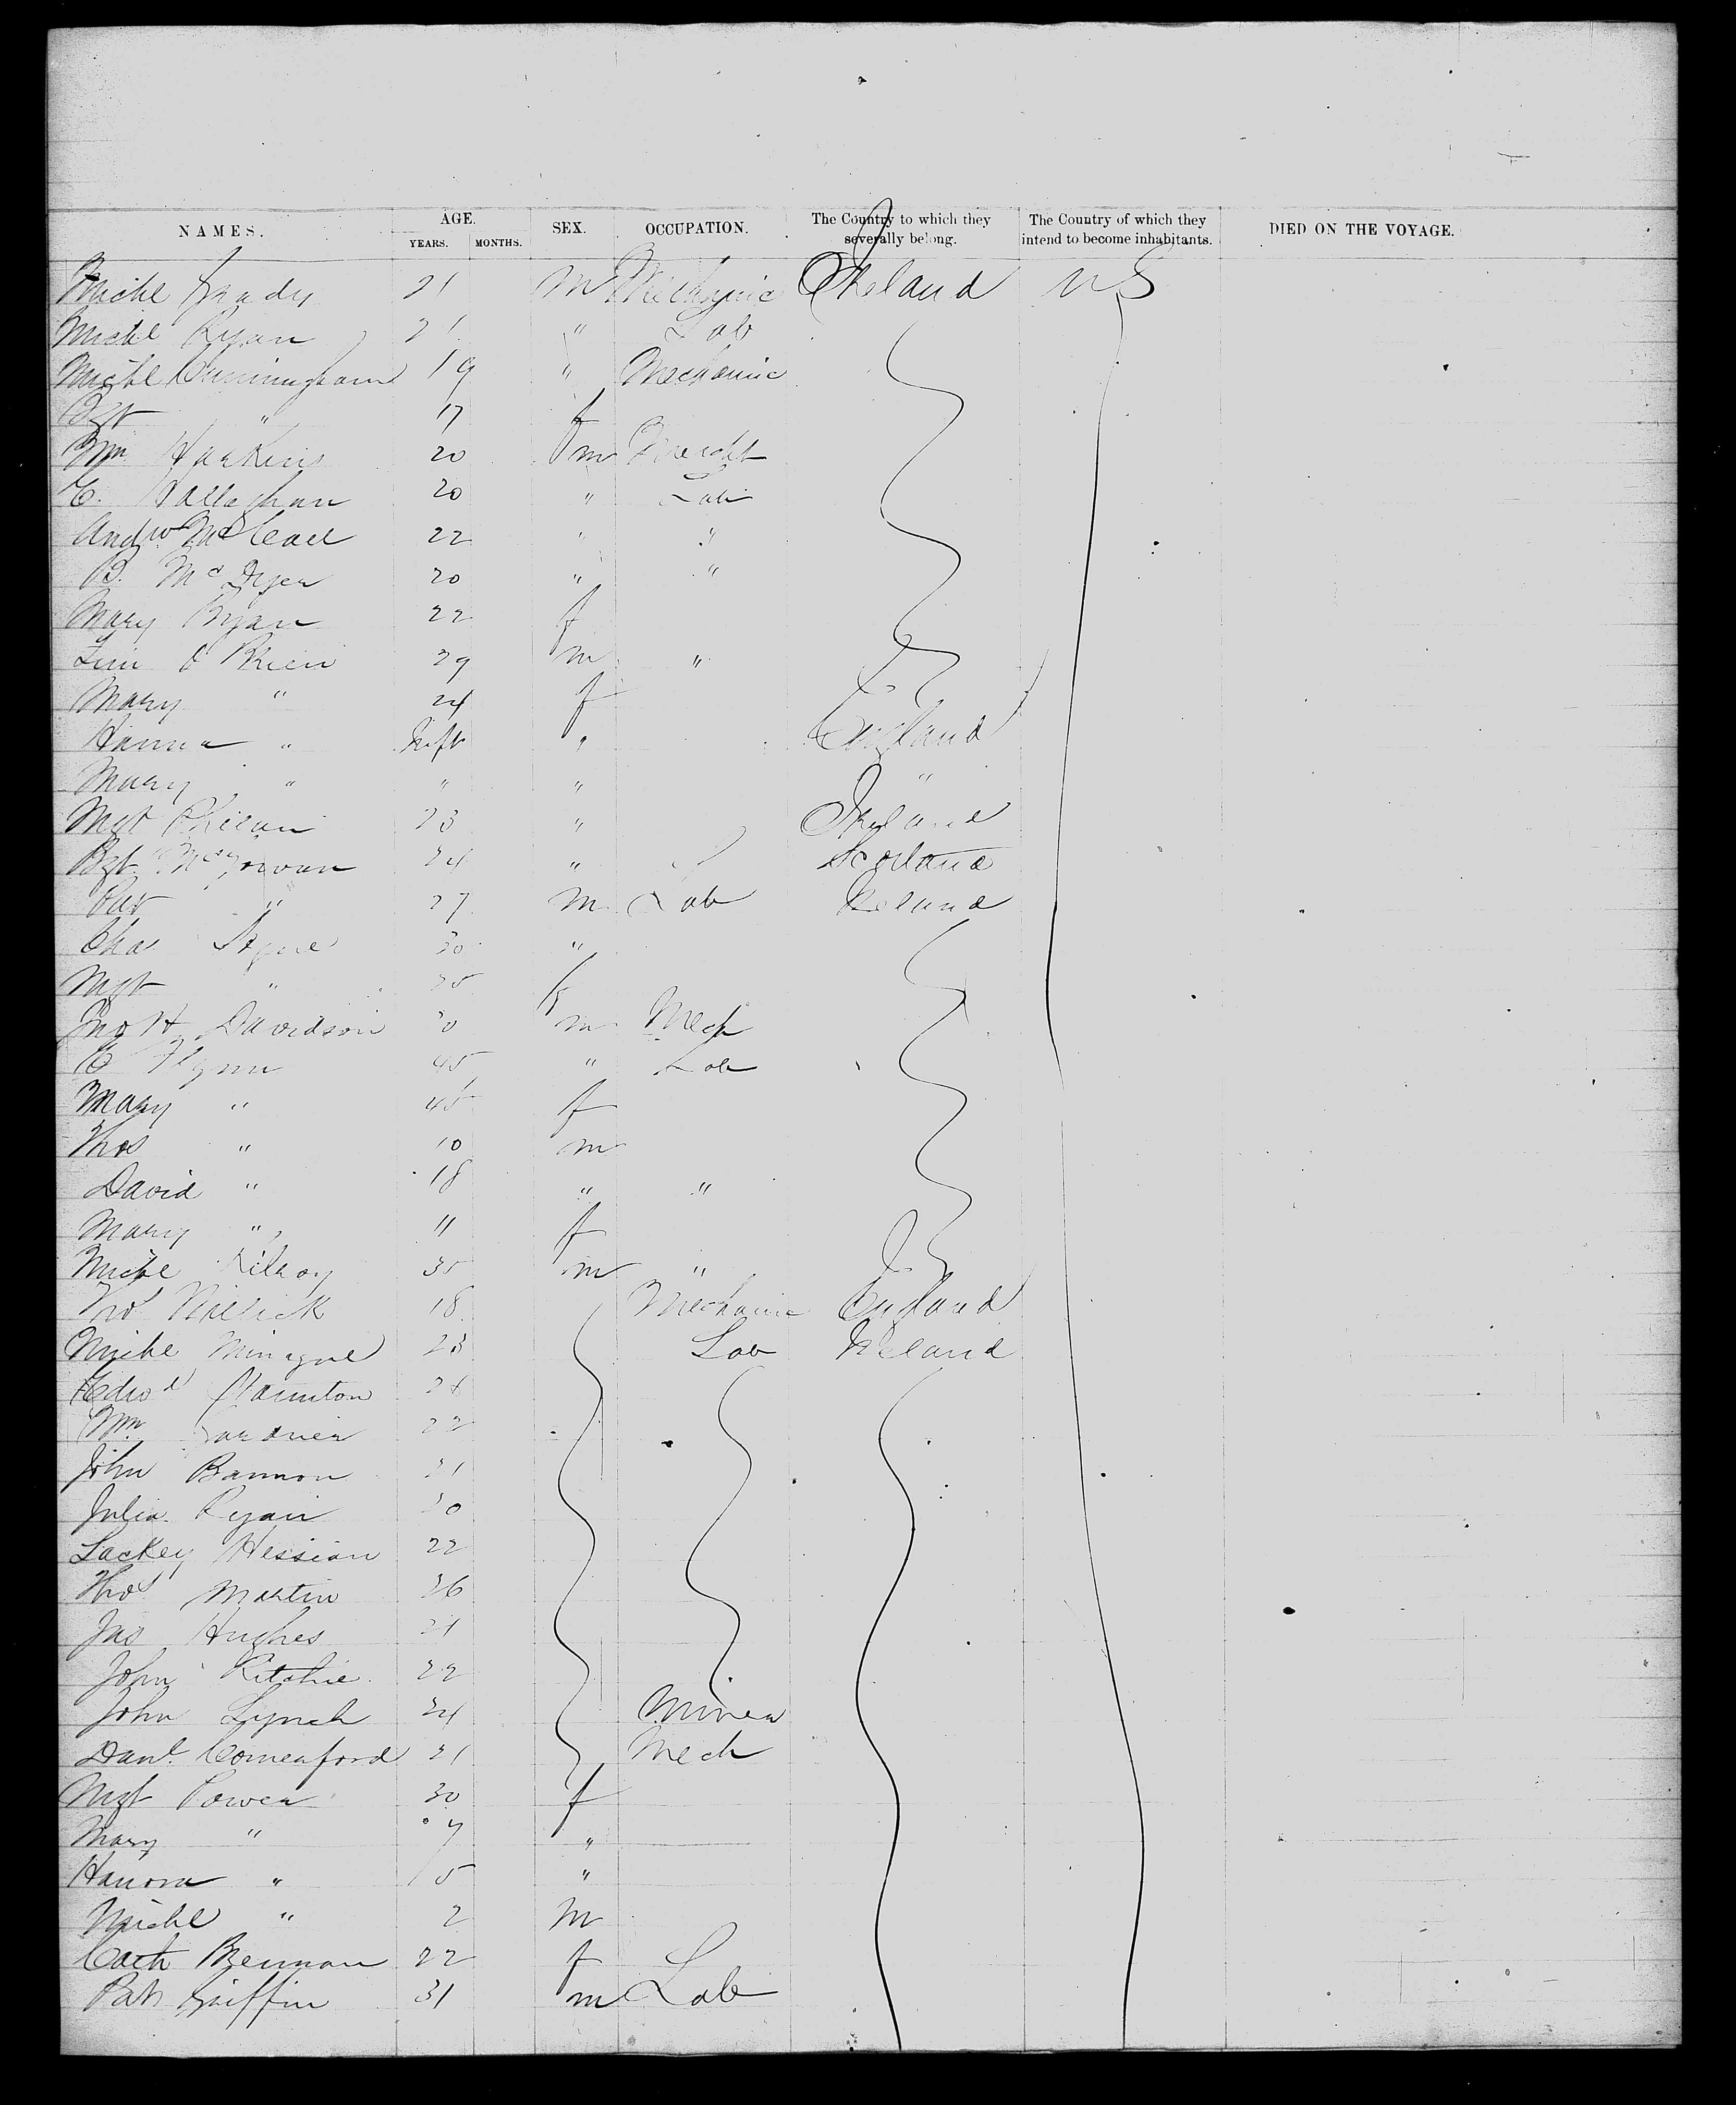 NAMES. AGE. SEX. OCCUPATION. The Country to which they severally belong. The Country of which they intend to become inhabitants. DIED ON THE VOYAGE.
YEARS. MONTHS.
Michl Grady 21 m Mechanic Ireland US
Michl Ryan 21 " Lab
Michl Cunningham 19 " Mechanic
Bgt " 17 f
Wm Harkins 20 m
C. Callaghan 20 " Lab
Andw 22 " "
B. McDyer 20 " "
Mary Bryan 22 f
Tim O'Brien 29 m "
Mary " 24 f
Hanna " Inft " England
Mary " " " "
Mgt 23 " Ireland
Bgt McGowan 24 " Scotland
Pat " 27 m Lab Ireland
Cha 30 "
Mgt " 25 f
Jno H. Davidson 20 m Mech
C Flynn 45 " Lab
Mary " 45 f
Thos " 10 m
David " 18 " "
Mary " 11 f
Michl Kilroy 35 m "
18 Mechanic England
Michl 23 Lab Ireland
Edwd
Wm Gardner 22
John Bannon 21
Julia Ryan 20
Lackey Hession 22
Thos Martin 26
Jno Hughes 21
John Ritchie 22
John Lynch 24 Miner
Danl Comerford 21 Mech
Mgt Power 30 f
Mary " 7 "
Hanora " 5 "
Michl " 2 m
Cath Brennan 22 f
Pat Griffin 31 m Lab